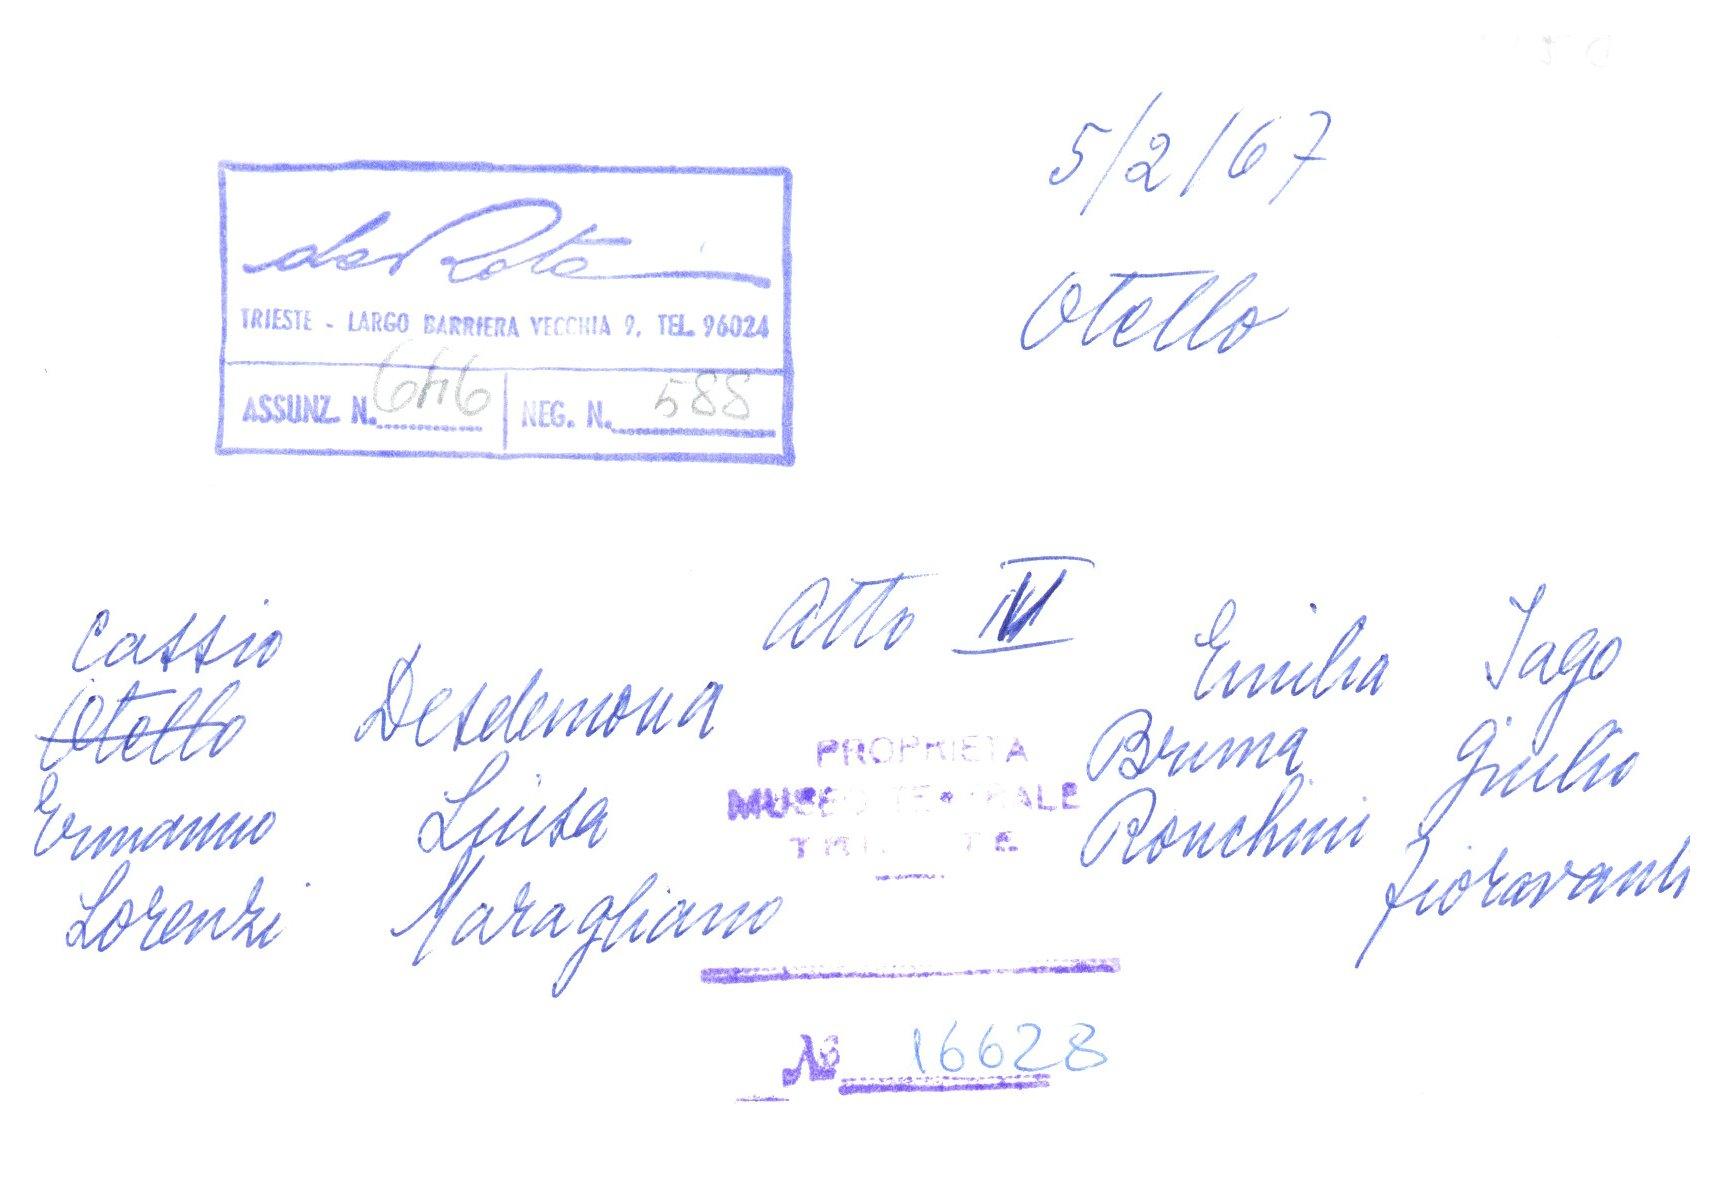 5/2/67
de Rota
TRIESTE - LARGO BARRIERA VECCHIA 9, TEL. 96024
Otello
ASSUNZ. N. 646 NEG. N. 588
Atto IV
Cassio
Otello
Ermanno
Lorenzi
Desdemona
Luisa
Maragliano
Emilia
Bruna
Ronchini
Iago
Giulio
Fioravanti
PROPRIETA
MUSEO TEATRALE
TRIESTE
No 16628